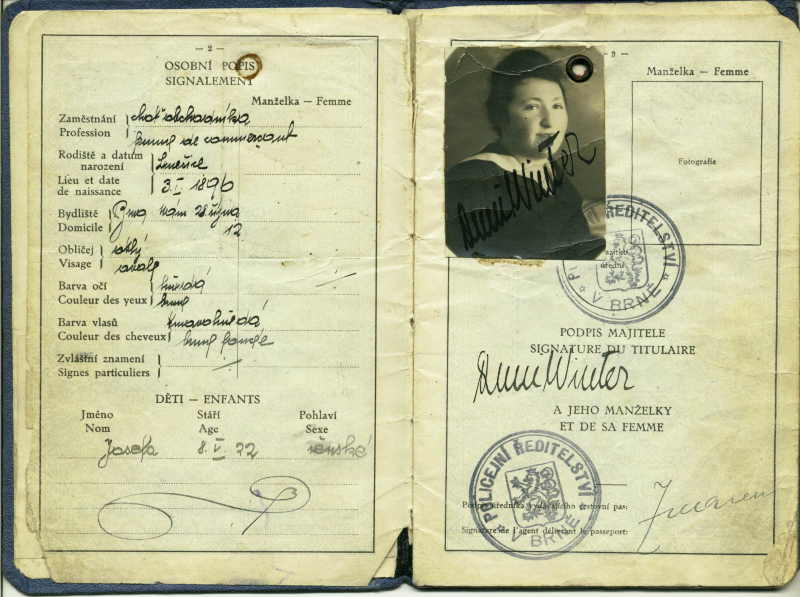 — 2 —
OSOBNÍ POPIS
SIGNALEMENT
Manželka — Femme
Zaměstnání choť obchodníka
Profession femme de commerçant
Rodiště a datum
narození
Lieu et date 3. I 1896
de naissance
Bydliště Brno nám 28 října
Domicile 12
Obličej
Visage ovale
Barva očí hnědá
Couleur des yeux brun
Barva vlasů tmavohnědá
Couleur des cheveux brun foncé
Zvláštní znamení
Signes particuliers
DĚTI — ENFANTS
Jméno Stáří Pohlaví
Nom Age Sexe
Josefa 8. V. 22 ženské
— 3 —
Manželka — Femme
Fotografie
Winter
POLICEJNÍ ŘEDITELSTVÍ
V BRNĚ
PODPIS MAJITELE
SIGNATURE DU TITULAIRE
Winter
A JEHO MANŽELKY
ET DE SA FEMME
POLICEJNÍ ŘEDITELSTVÍ
V BRNĚ
Podpis úředníka vydávajícího cestovní pas:
Signature de l'agent délivrant le passeport: